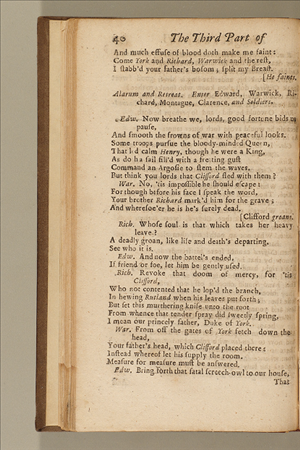 40 The Third Part of
And much effuse of blood doth make me faint:
Come York and Richard, Warwick and the rest,
I stabb'd your father's bosom; split my Breast.
[He faints.
Alarum and Retreat. Enter Edward, Warwick, Ri-
chard, Montague, Clarence, and Soldiers.
Edw. Now breathe we, lords, good fortune bids us
pause,
And smooth the frowns of war with peaceful looks.
Some troops pursue the bloody-minded Queen,
That led calm Henry, though he were a King,
As do h a sail fill'd with a fretting gust
Command an Argosie to stem the waves.
But think you lords that Clifford fled with them?
War. No, 'tis impossible he should escape:
For though before his face I speak the word,
Your brother Richard mark'd him for the grave;
And wheresoe'er he is he's surely dead.
[Clifford groans.
Rich. Whose soul is that which takes her heavy
leave?
A deadly groan, like life and death's departing.
See who it is.
Edw. And now the battel's ended,
If friend or foe, let him be gently used.
Rich. Revoke that doom of mercy, for 'tis
Clifford,
Who not contented that he lop'd the branch,
In hewing Rutland when his leaves put forth;
But set this murthering knife unto the root
From whence that tender spray did sweetly spring,
I mean our princely father, Duke of York.
War. From off the gates of York fetch down the
head,
Your father's head, which Clifford placed there:
Instead whereof let his supply the room.
Measure for measure must be answered.
Edw. Bring forth that fatal scretch-owl to our house,
That